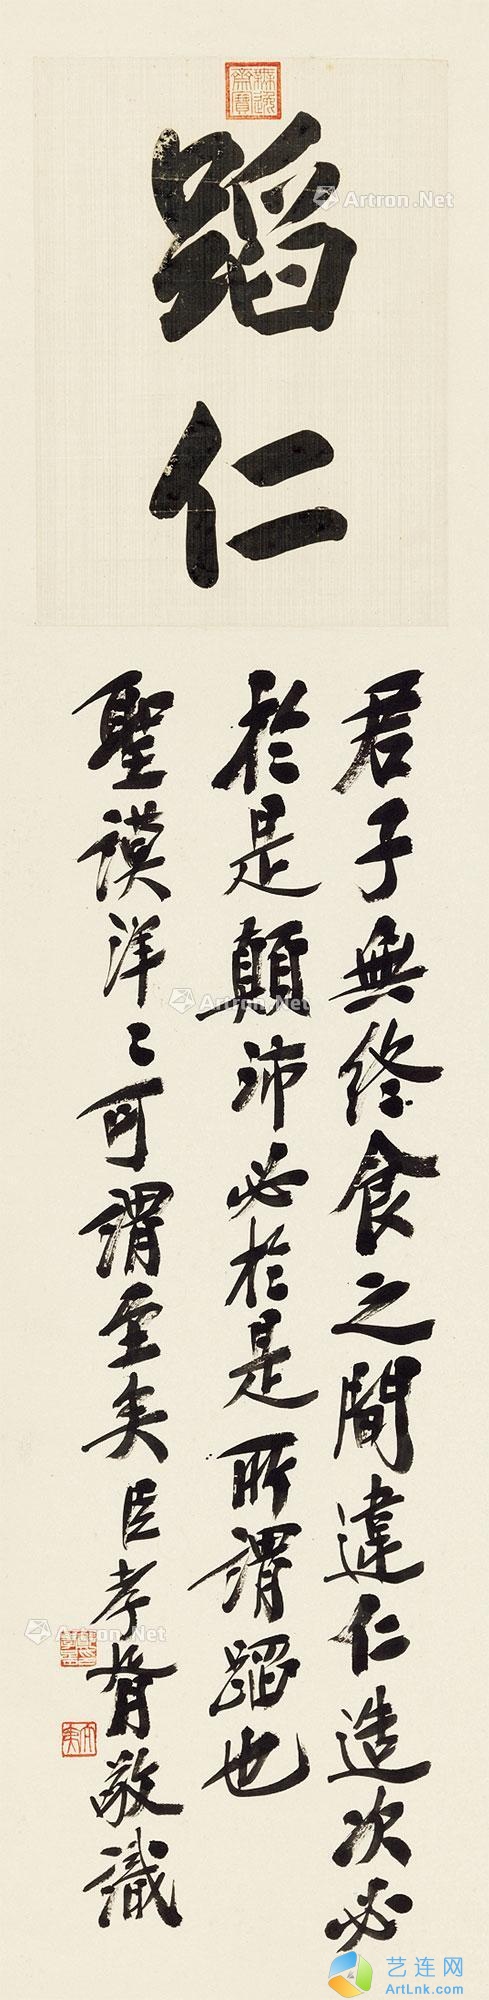 無逸齋寶
蹈仁
君子無終食之間違仁造次必
於是顛沛必於是所謂蹈也
聖謨洋〻可謂至矣臣孝胥敬識
Artron.Net
Artron.Net
Artron.Net
艺连网
ArtLnk.com